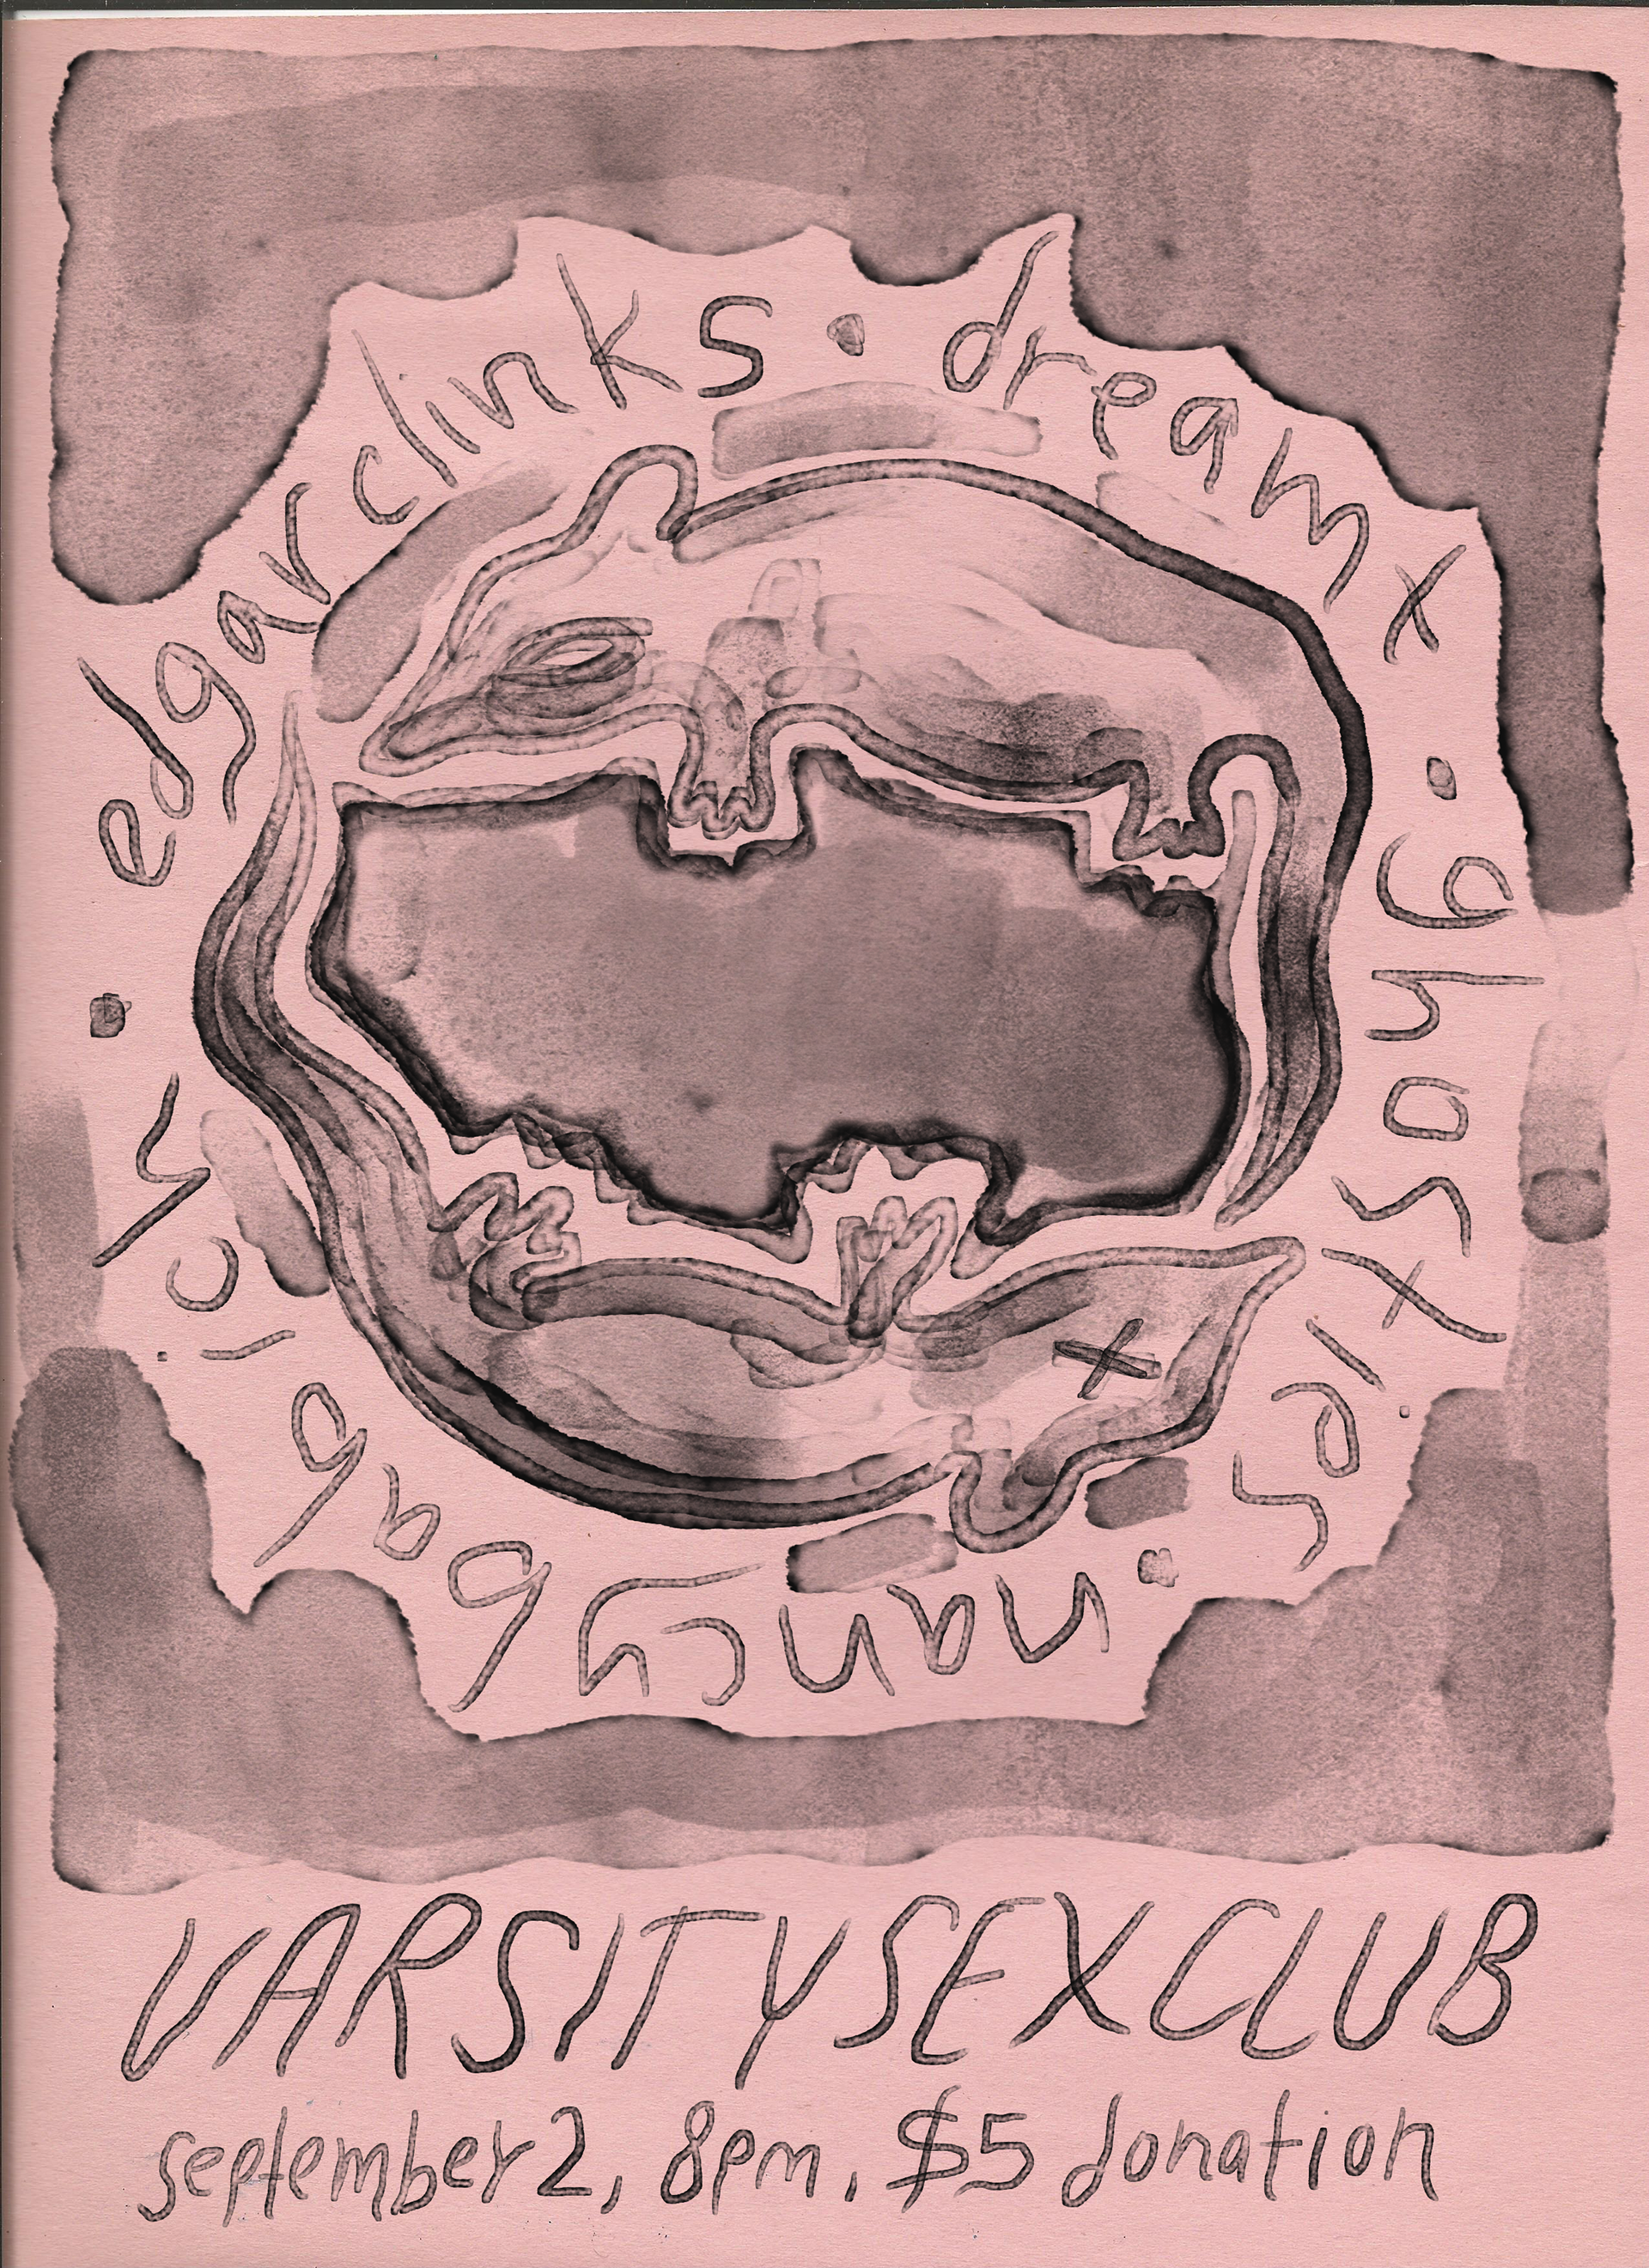 edgarclinks · dreamx · ghosties · nancybabich ·
VARSITY SEX CLUB
september 2, 8pm, $5 donation